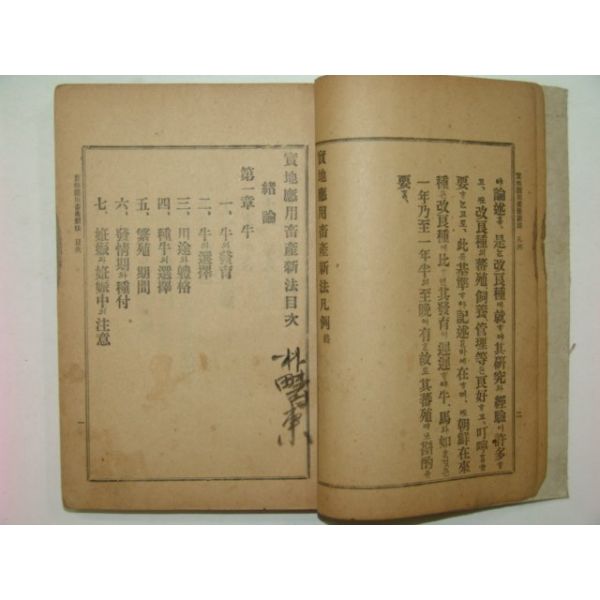 야論述홈、是는改良種에就하야其硏究와經驗이許多하
고、又改良種의蕃殖、飼養、管理等은良好하고、叮嚀을
要하는고로、此를基準하야記述함에在하며、又朝鮮在來
種은改良種에比하면其發育이遲遲하야牛、馬와如한것은
一年乃至一年半의至晩이有한故로其蕃殖에도斟酌을
要홈
實地應用畜產新法凡例終
二
實地應用畜產新法目次
緖論
第一章 牛
一、牛의發育
二、牛의選擇
三、用途와體格
四、種牛의選擇
五、繁殖의期間
六、發情期와種付
七、姙娠과姙娠中의注意
一